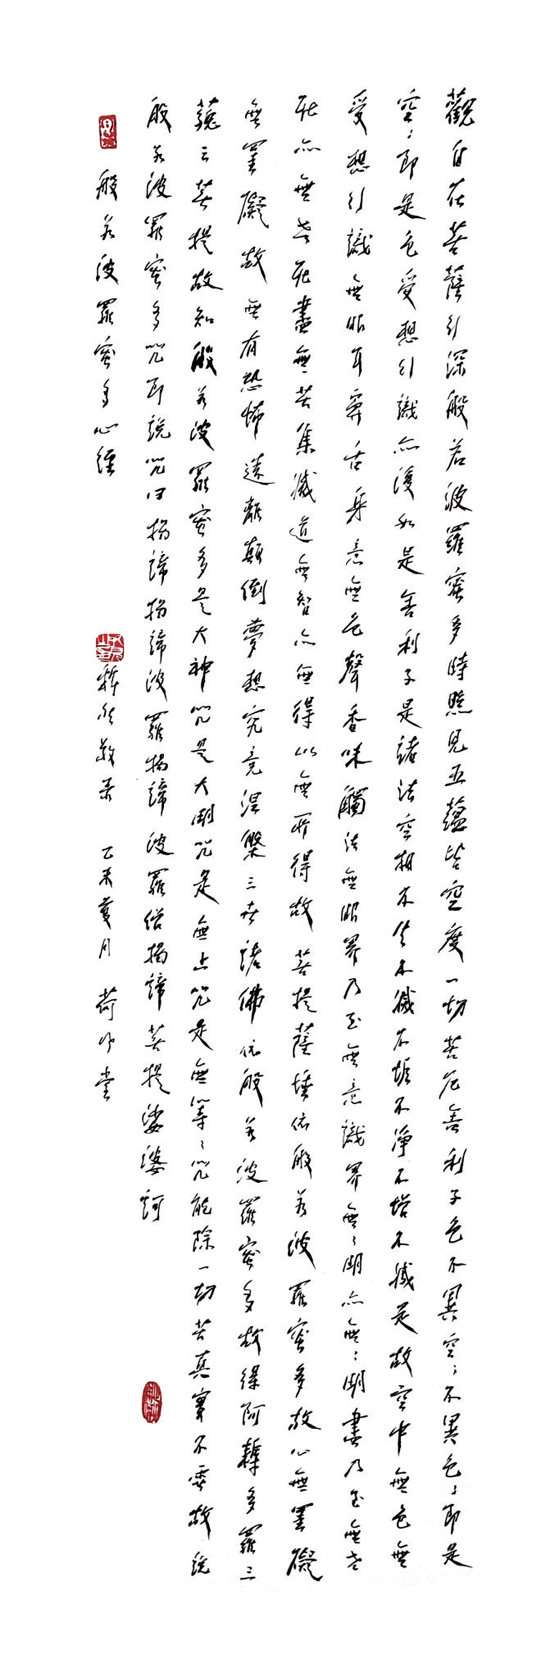 觀自在菩薩行深般若波羅蜜多時照見五蘊皆空度一切苦厄舍利子色不異空〻不異色〻即是
空〻即是色受想行識亦復如是舍利子是諸法空相不生不滅不垢不淨不增不減是故空中無色無
受想行識無眼耳鼻舌身意無色聲香味觸法無眼界乃至無意識界無〻明亦無〻明盡乃至無老
死亦無老死盡無苦集滅道無智亦無得以無所得故菩提薩埵依般若波羅蜜多故心無罣礙
無罣礙故無有恐怖遠離顛倒夢想究竟涅槃三世諸佛依般若波羅蜜多故得阿耨多羅三
藐三菩提故知般若波羅蜜多是大神咒是大明咒是無上咒是無等〻咒能除一切苦真實不虛故說
般若波羅蜜多咒即說咒曰揭諦揭諦波羅揭諦波羅僧揭諦菩提娑婆訶
般若波羅蜜多心經
敬录 乙未夏月 荷 堂